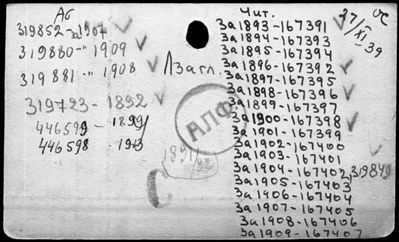 Аб
319852 - 1907
319880 - " 1909
319881 - " 1908
319723 - 1892
446599 - 1899/
446598 - 1913
Лзагл.
АЛФ
1891/92
Чит.
За 1893 - 167391
За 1894 - 167393
За 1895 - 167394
За 1896 - 167392
За 1897 - 167395
За 1898 - 167396
За 1899 - 167397
За 1900 - 167398
За 1901 - 167399
За 1902 - 167400
За 1903 - 167401
За 1904 - 167402, 319849
За 1905 - 167403
За 1906 - 167404
За 1907 - 167405
За 1908 - 167406
За 1909 - 167407
27/XI-39
ОС